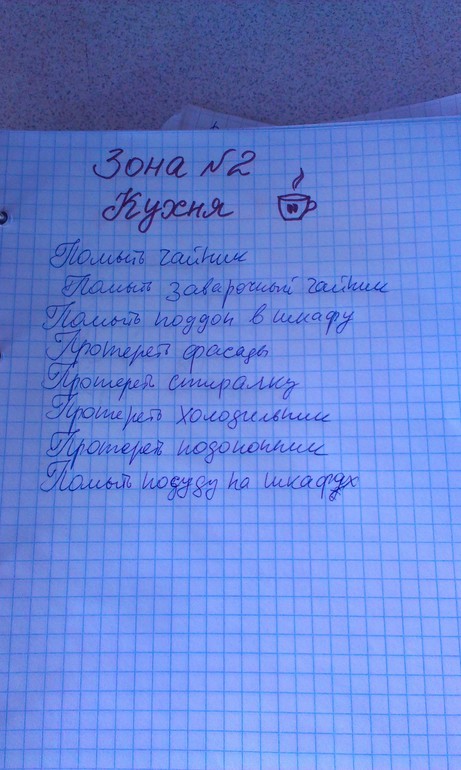 Зона №2
Кухня
Помыть чайник
Помыть заварочный чайник
Помыть поддон в шкафу
Протереть фасады
Протереть стиралку
Протереть холодильник
Протереть подоконник
Помыть посуду на шкафах